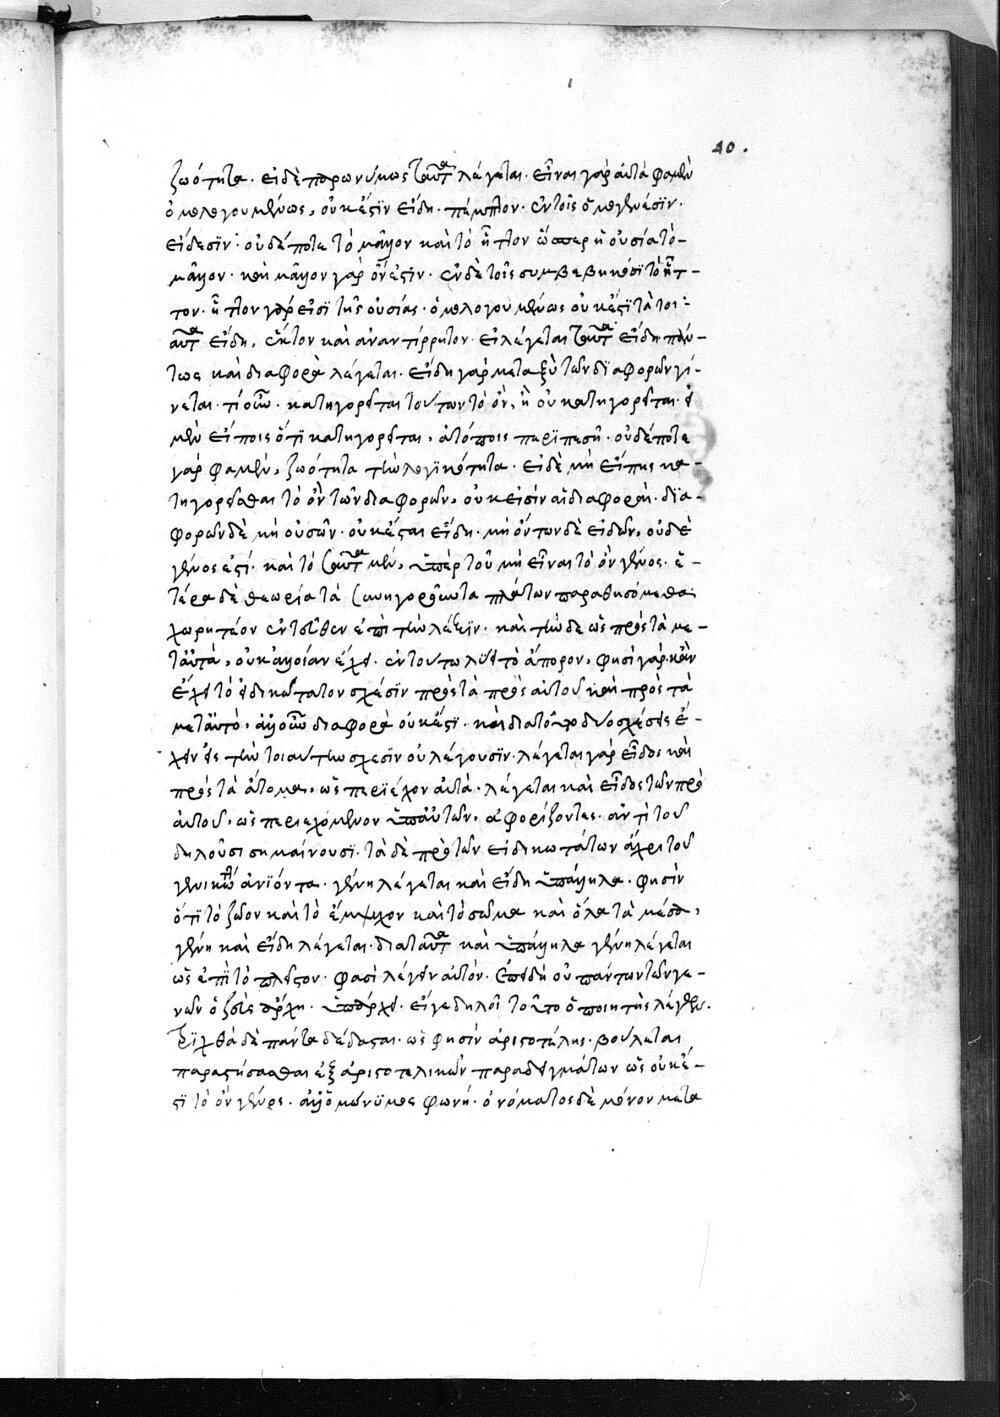 40.
ζωότητα. εἰ δὲ παρωνύμως ταῦτα λέγεται. εἶναι γὰρ αὐτὰ φαμὲν
ὁμολογουμένως, οὐκ ἔστιν εἴδη. πέμπτον. ἐν τοῖς ὁμογενέσιν
εἴδεσιν. οὐδέποτε τὸ μᾶλλον καὶ τὸ ἧττον ὥσπερ ἡ οὐσία τὸ
μᾶλλον. καὶ μᾶλλον γὰρ ὄν ἐστιν. ἐν δὲ τοῖς συμβεβηκόσι τὸ ἧτ-
τον. ἧττον γάρ εἰσι τῆς οὐσίας. ὁμολογουμένως οὐκ ἔστι τὰ τοι-
αῦτα εἴδη, ἕκτον καὶ ἀναντίρρητον. εἰ λέγεται ταῦτα εἴδη πάν-
τως καὶ διαφορὰ λέγεται. εἴδη γὰρ μεταξὺ τῶν διαφορῶν γί-
νεται. τί οὖν. κατηγορεῖται τούτων τὸ ὄν, ἢ οὐ κατηγορεῖται. εἰ
μὲν εἴποις ὅτι κατηγορεῖται, ἀτόποις περιπεσῇ. οὐδέποτε
γάρ φαμεν, ζωότητα τὴν λογικότητα. εἰ δὲ μὴ εἴπῃς κα-
τηγορεῖσθαι τὸ ὂν τῶν διαφορῶν, οὐκ εἰσὶν αἱ διαφοραί. δια-
φορῶν δὲ μὴ οὐσῶν. οὐκ ἔσται εἴδη. μὴ ὄντων δὲ εἰδῶν, οὐδὲ
γένος ἐστί. καὶ τὸ ταῦτα μέν, ὑπὲρ τοῦ μὴ εἶναι τὸ ὂν γένος. ἑ-
τέρα δὲ θεωρία τὰ συνηγοροῦντα πλάτωνι παραθησόμεθα
χωρητέον ἐντεῦθεν ἐπὶ τὴν λέξιν. καὶ τὴν δε ὡς πρὸς τὰ με-
τ αὐτὰ, οὐκ ἀλλοίαν ἔχει. ἐν τούτῳ λύει τὸ ἄπορον, φησὶ γὰρ κἂν
ἔχει τὸ εἰδικώτατον σχέσιν πρὸς τὰ πρὸς αὐτοῦ καὶ πρὸς τὰ
μετ αὐτὸ, ἀλλ οὖν διαφορὰ οὐκ ἔστι. καὶ διὰ τοῦτο δύο σχέσεις ἔ-
χειν εἰς τὴν τοιαύτην σχέσιν οὐ λέγουσιν. λέγεται γὰρ εἶδος καὶ
πρὸς τὰ ἄτομα, ὡς περιέχον αὐτά. λέγεται καὶ εἶδος τῶν πρὸ
αὐτοῦ, ὡς περιεχόμενον ὑπ αὐτῶν, ἀφορίζοντες. ἀντὶ τοῦ
δηλοῦσι σημαίνουσι. τὰ δὲ πρὸ τῶν εἰδικωτάτων ἄχρι τοῦ
γενικωτάτου ἀνιόντα. γένη λέγεται καὶ εἴδη ὑπάλληλα. φησὶν
ὅτι τὸ ζῶον καὶ τὸ ἔμψυχον καὶ τὸ σῶμα καὶ ὅλα τὰ μέσα,
γένη καὶ εἴδη λέγεται. διὰ ταῦτα καὶ ὑπάλληλα γένη λέγεται
ὡς ἐπὶ τὸ πλεῖστον. φασὶ λέγειν αὐτόν. ἐπειδὴ οὐ πάντων τῶν γε-
νῶν ὁ ζεὺς ἄρχη. ὑπάρχει. εἴγε δηλοῖ τοῦτο ὁ ποιητὴς λέγων.
τριχθὰ δὲ πάντα δέδασται. ὡς φησὶν ἀριστοτέλης. βούλεται
παραστήσασθαι ἐξ ἀριστοτελικῶν παραδειγμάτων ὡς οὐκ ἔ-
στι τὸ ὂν γένος. ἀλλ ὁμώνυμος φωνή. ὀνόματος δὲ μόνον μετα